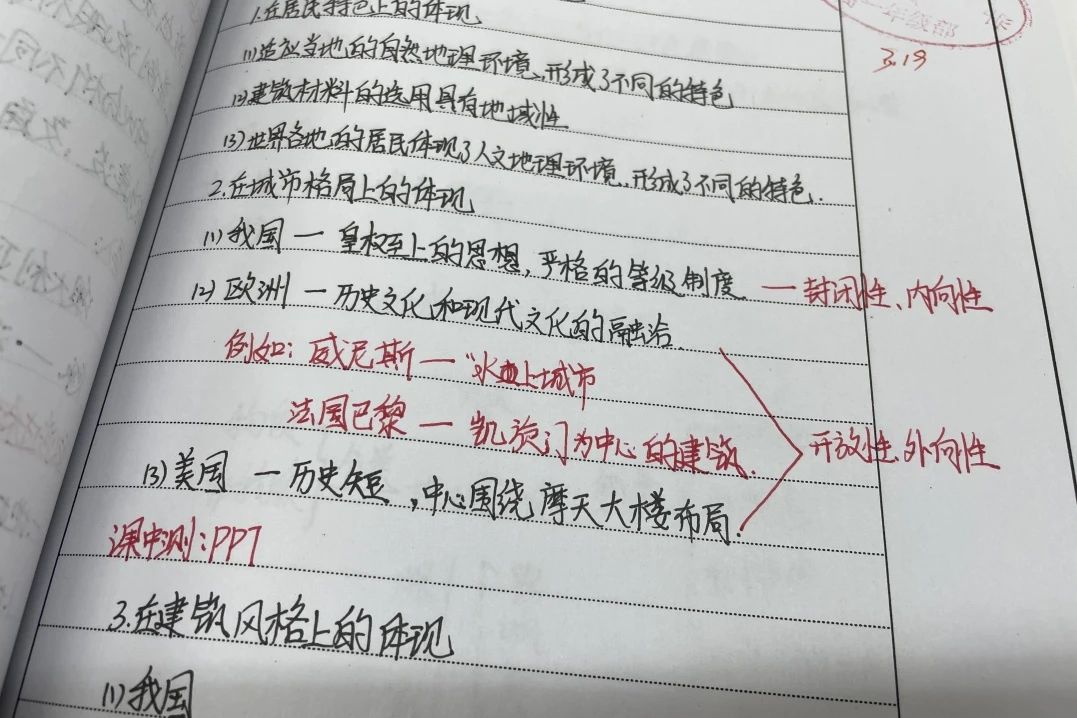 1.在居民特色上的体现
(1)适应当地的自然地理环境、形成了不同的特色
(2)建筑材料的选用具有地域性
(3)世界各地的居民体现了人文地理环境、形成了不同的特色.
2.在城市格局上的体现
(1)我国 — 皇权至上的思想,严格的等级制度 — 封闭性、内向性
(2)欧洲 — 历史文化和现代文化的融洽
例如:威尼斯 — “水上城市
法国巴黎 — 凯旋门为中心的建筑.
开放性.外向性
(3)美国 — 历史短,中心围绕摩天大楼布局.
课中测:PPT
3.在建筑风格上的体现
(1)我国
一年级部
3.19